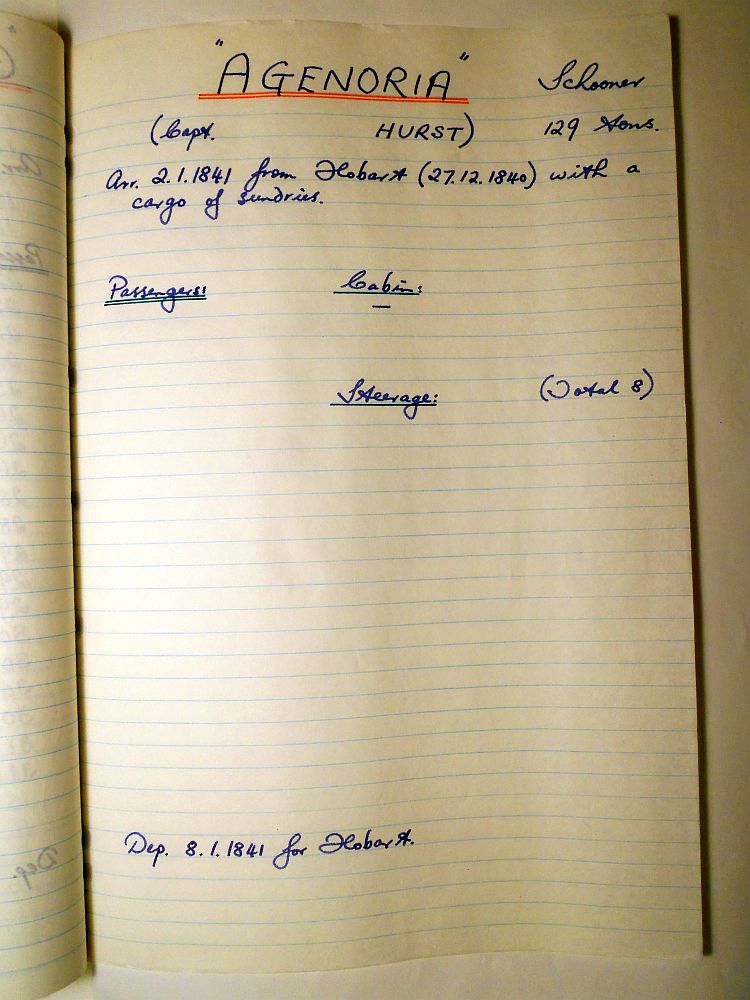 "AGENORIA" Schooner
(Capt. HURST) 129 tons.
Arr. 2.1.1841 from Hobart (27.12.1840) with a
cargo of sundries.
Passengers: Cabin:
—
Steerage: (Total 8)
Dep. 8.1.1841 for Hobart.
Dep.